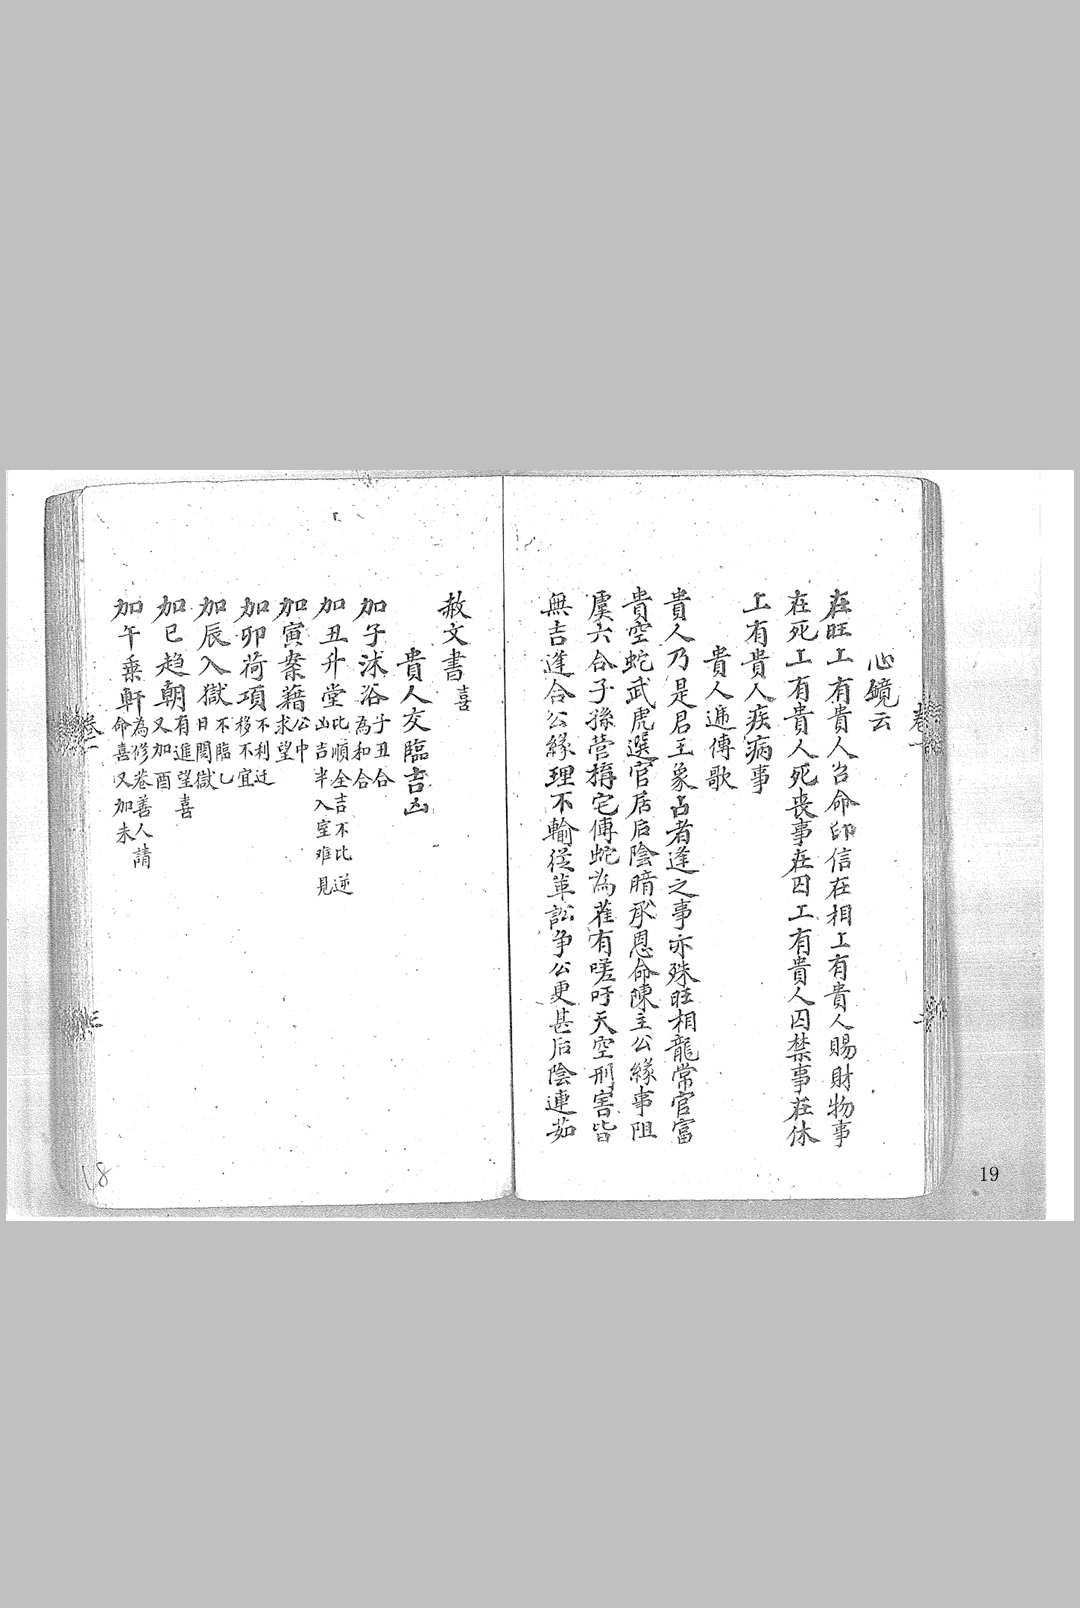 卷一
心鏡云
在旺上有貴人召命印信在相上有貴人賜財物事
在死上有貴人死喪事在囚上有貴人囚禁事在休
上有貴人疾病事
貴人遁傳歌
貴人乃是君王象占者逢之事亦殊旺相龍常官富
貴空蛇武虎選官居后陰暗承恩命陳主公緣事阻
虞六合子孫營搆宅傳蛇為雀有嗟吁天空刑害皆
無吉逢合公緣理不輸從革訟争公更甚后陰連茹
二
19
赦文書喜
貴人交臨吉凶
加子沐浴子丑合為和合
加丑升堂比順全吉不比逆凶吉半入室难見
加寅案籍公中求望
加卯荷項不利迁移不宜
加辰入獄不臨乙日閗獄
加巳趋朝有進望喜又加酉
加午乗軒為修卷善人請命喜又加未
卷一
三
18